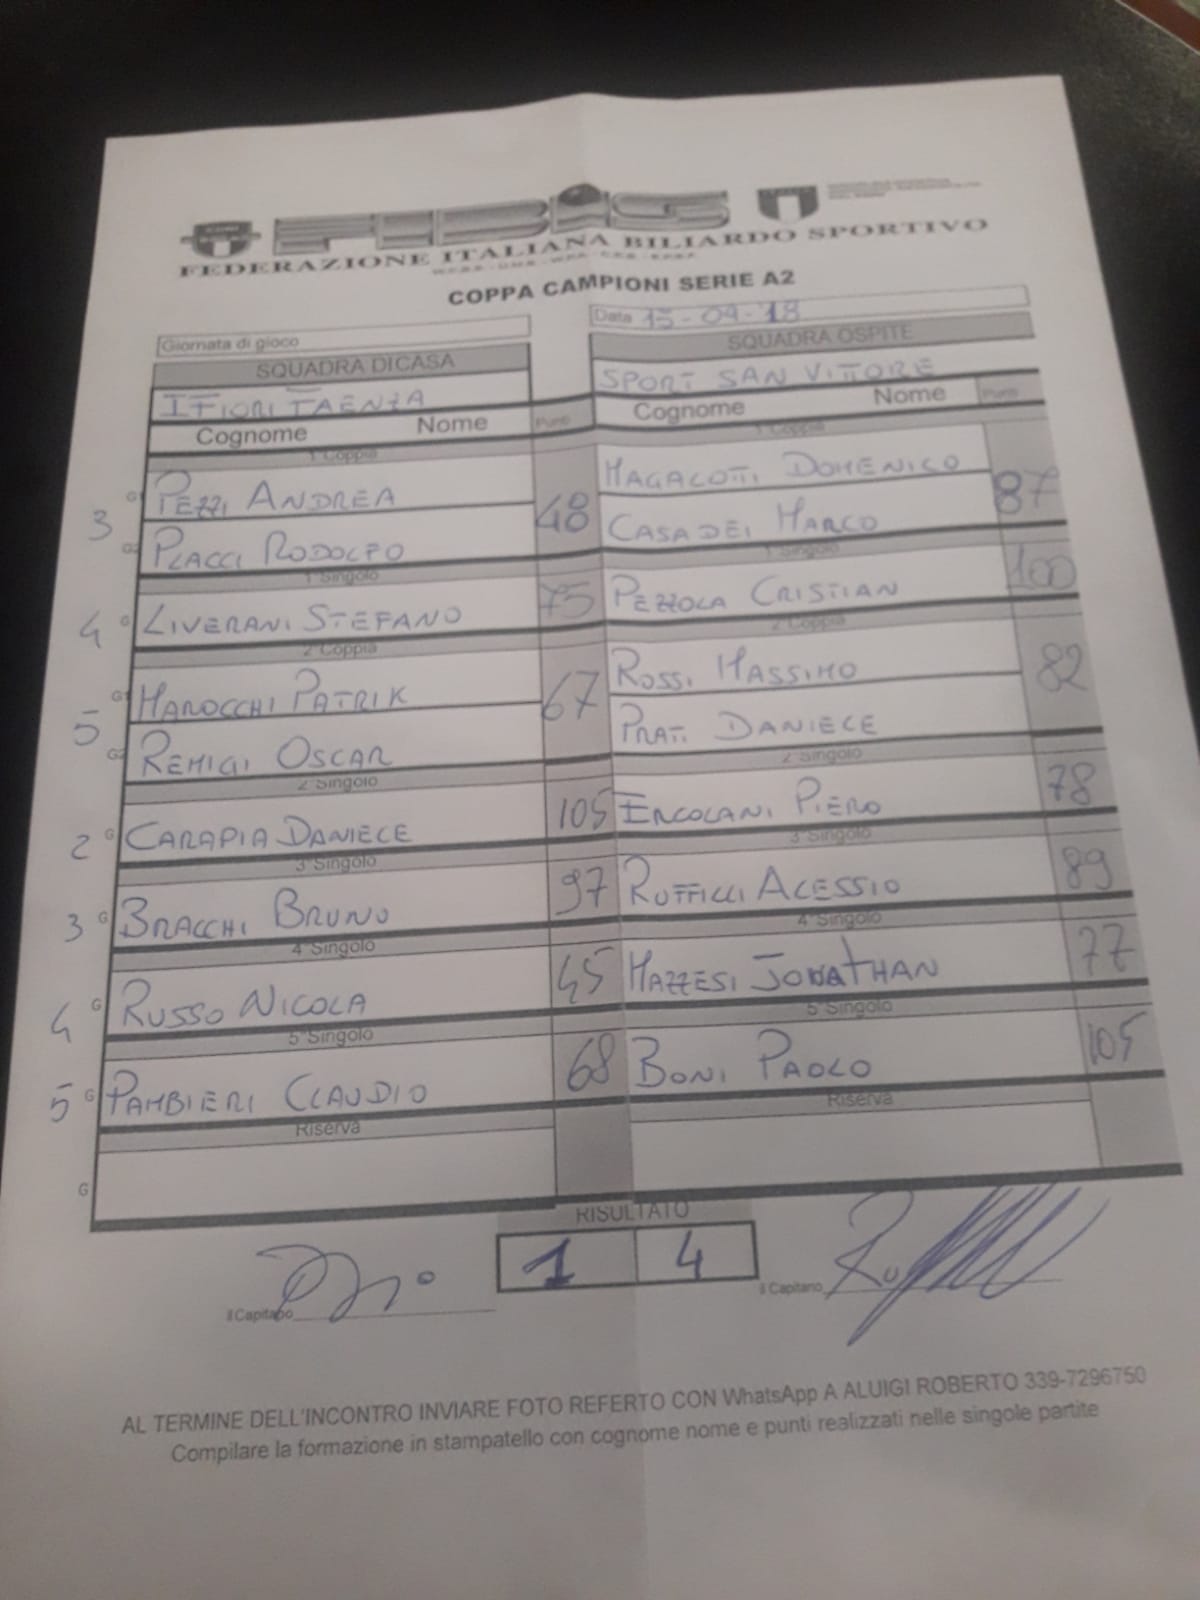 FIBiS
FEDERAZIONE ITALIANA BILIARDO SPORTIVO
COPPA CAMPIONI SERIE A2
Giornata di gioco
Data 15-09-'18
SQUADRA DI CASA
SQUADRA OSPITE
I FIORI FAENZA
SPORT SAN VITTORE
Cognome Nome Punti
Cognome Nome Punti
1 Coppia
1 Coppia
3 G1 PEZZI ANDREA 48
MAGALOTTI DOMENICO 87
G2 PLACCI RODOLFO
CASADEI MARCO
1 Singolo
1 Singolo
4 G LIVERANI STEFANO 75
PEZZOLA CRISTIAN 100
2 Coppia
2 Coppia
5 G1 MAROCCHI PATRIK 67
ROSSI MASSIMO 82
G2 REMIGI OSCAR
PRATI DANIELE
2 Singolo
2 Singolo
2 G CARAPIA DANIELE 105
ERCOLANI PIERO 78
3 Singolo
3 Singolo
3 G BRACCHI BRUNO 97
RUFFILLI ALESSIO 89
4 Singolo
4 Singolo
4 G RUSSO NICOLA 45
MAZZESI JONATHAN 77
5 Singolo
5 Singolo
5 G PAMBIERI CLAUDIO 68
BONI PAOLO 105
Riserva
Riserva
G
RISULTATO
1 4
il Capitano
il Capitano
AL TERMINE DELL'INCONTRO INVIARE FOTO REFERTO CON WhatsApp A ALUIGI ROBERTO 339-7296750
Compilare la formazione in stampatello con cognome nome e punti realizzati nelle singole partite